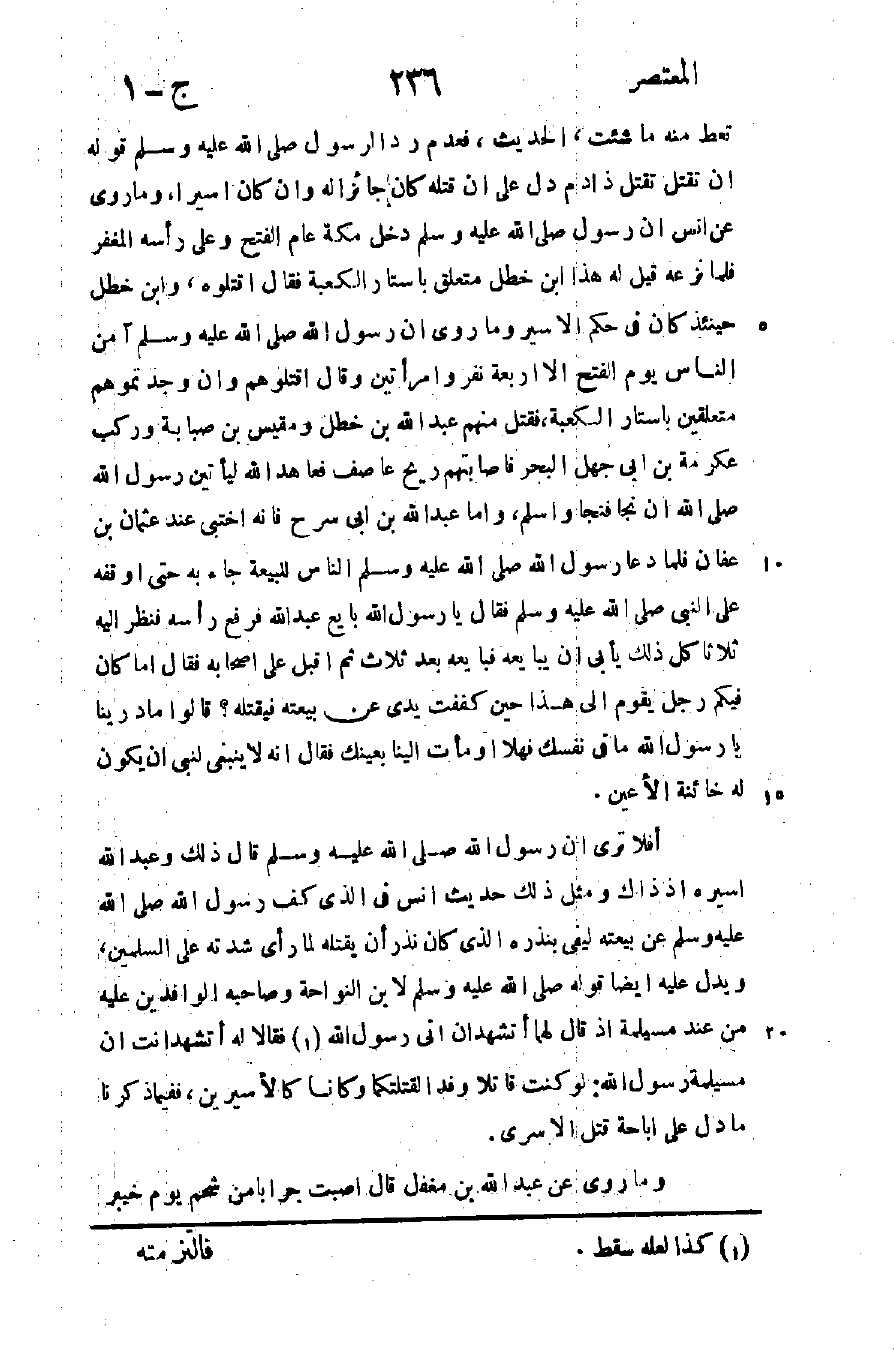 المعتصر ٢٣٦ ج – ١
تعط منه ما شئت، الحديث، فعدم رد الرسول صلى الله عليه وسلم قوله
ان تقتل تقتل ذادم دل على ان قتله كان جائزا له وان كان اسيرا، وماروى
عن انس ان رسول صلى الله عليه وسلم دخل مكة عام الفتح وعلى رأسه المغفر
فلما نزعه قيل له هذا ابن خطل متعلق باستار الكعبة فقال اقتلوه، وابن خطل
حينئذ كان فى حكم الاسير وما روى ان رسول الله صلى الله عليه وسلم آمن ٥
الناس يوم الفتح الا اربعة نفر وامرأتين وقال اقتلوهم وان وجدتموهم
متعلقين باستار الكعبة، فقتل منهم عبدالله بن خطل ومقيس بن صبابة وركب
عكرمة بن ابى جهل البحر فاصابتهم ريح عاصف فعاهد الله ليأتين رسول الله
صلى الله ان نجا فنجا واسلم، واما عبدالله بن ابى سرح فانه اختبى عند عثمان بن
عفان فلما دعا رسول الله صلى الله عليه وسلم الناس للبيعة جاء به حتى اوقفه ١٠
على النبى صلى الله عليه وسلم فقال يارسول الله بايع عبدالله فرفع رأسه فنظر اليه
ثلاثا كل ذلك يأبى ان يبايعه فبايعه بعد ثلاث ثم اقبل على اصحابه فقال اما كان
فيكم رجل يقوم الى هذا حين كففت يدى عن بيعته فيقتله؟ قالوا مادرينا
يا رسول الله ما فى نفسك فهلا اومأت الينا بعينك فقال انه لا ينبغى لنبى ان يكون
له خائنة الأعين. ١٥
أفلا ترى ان رسول الله صلى الله عليه وسلم قال ذلك وعبدالله
اسيره اذ ذاك ومثل ذلك حديث انس فى الذى كف رسول الله صلى الله
عليه وسلم عن بيعته ليفى بنذره الذى كان نذر أن يقتله لما رأى شدته على المسلمين،
ويدل عليه ايضا قوله صلى الله عليه وسلم لابن النواحة وصاحبه الوافدين عليه
من عند مسيلمة اذ قال لهما أتشهدان انى رسول الله (١) فقالا له أتشهد انت ان ٢٠
مسيلمة رسول الله: لو كنت قاتلا وفدا لقتلتكما وكانا كالأسيرين، ففيما ذكرنا
ما دل على اباحة قتل الاسرى.
وما روى عن عبدالله بن مغفل قال اصبت جرابا من شحم يوم خيبر
(١) كذا لعله سقط. فالتزمته